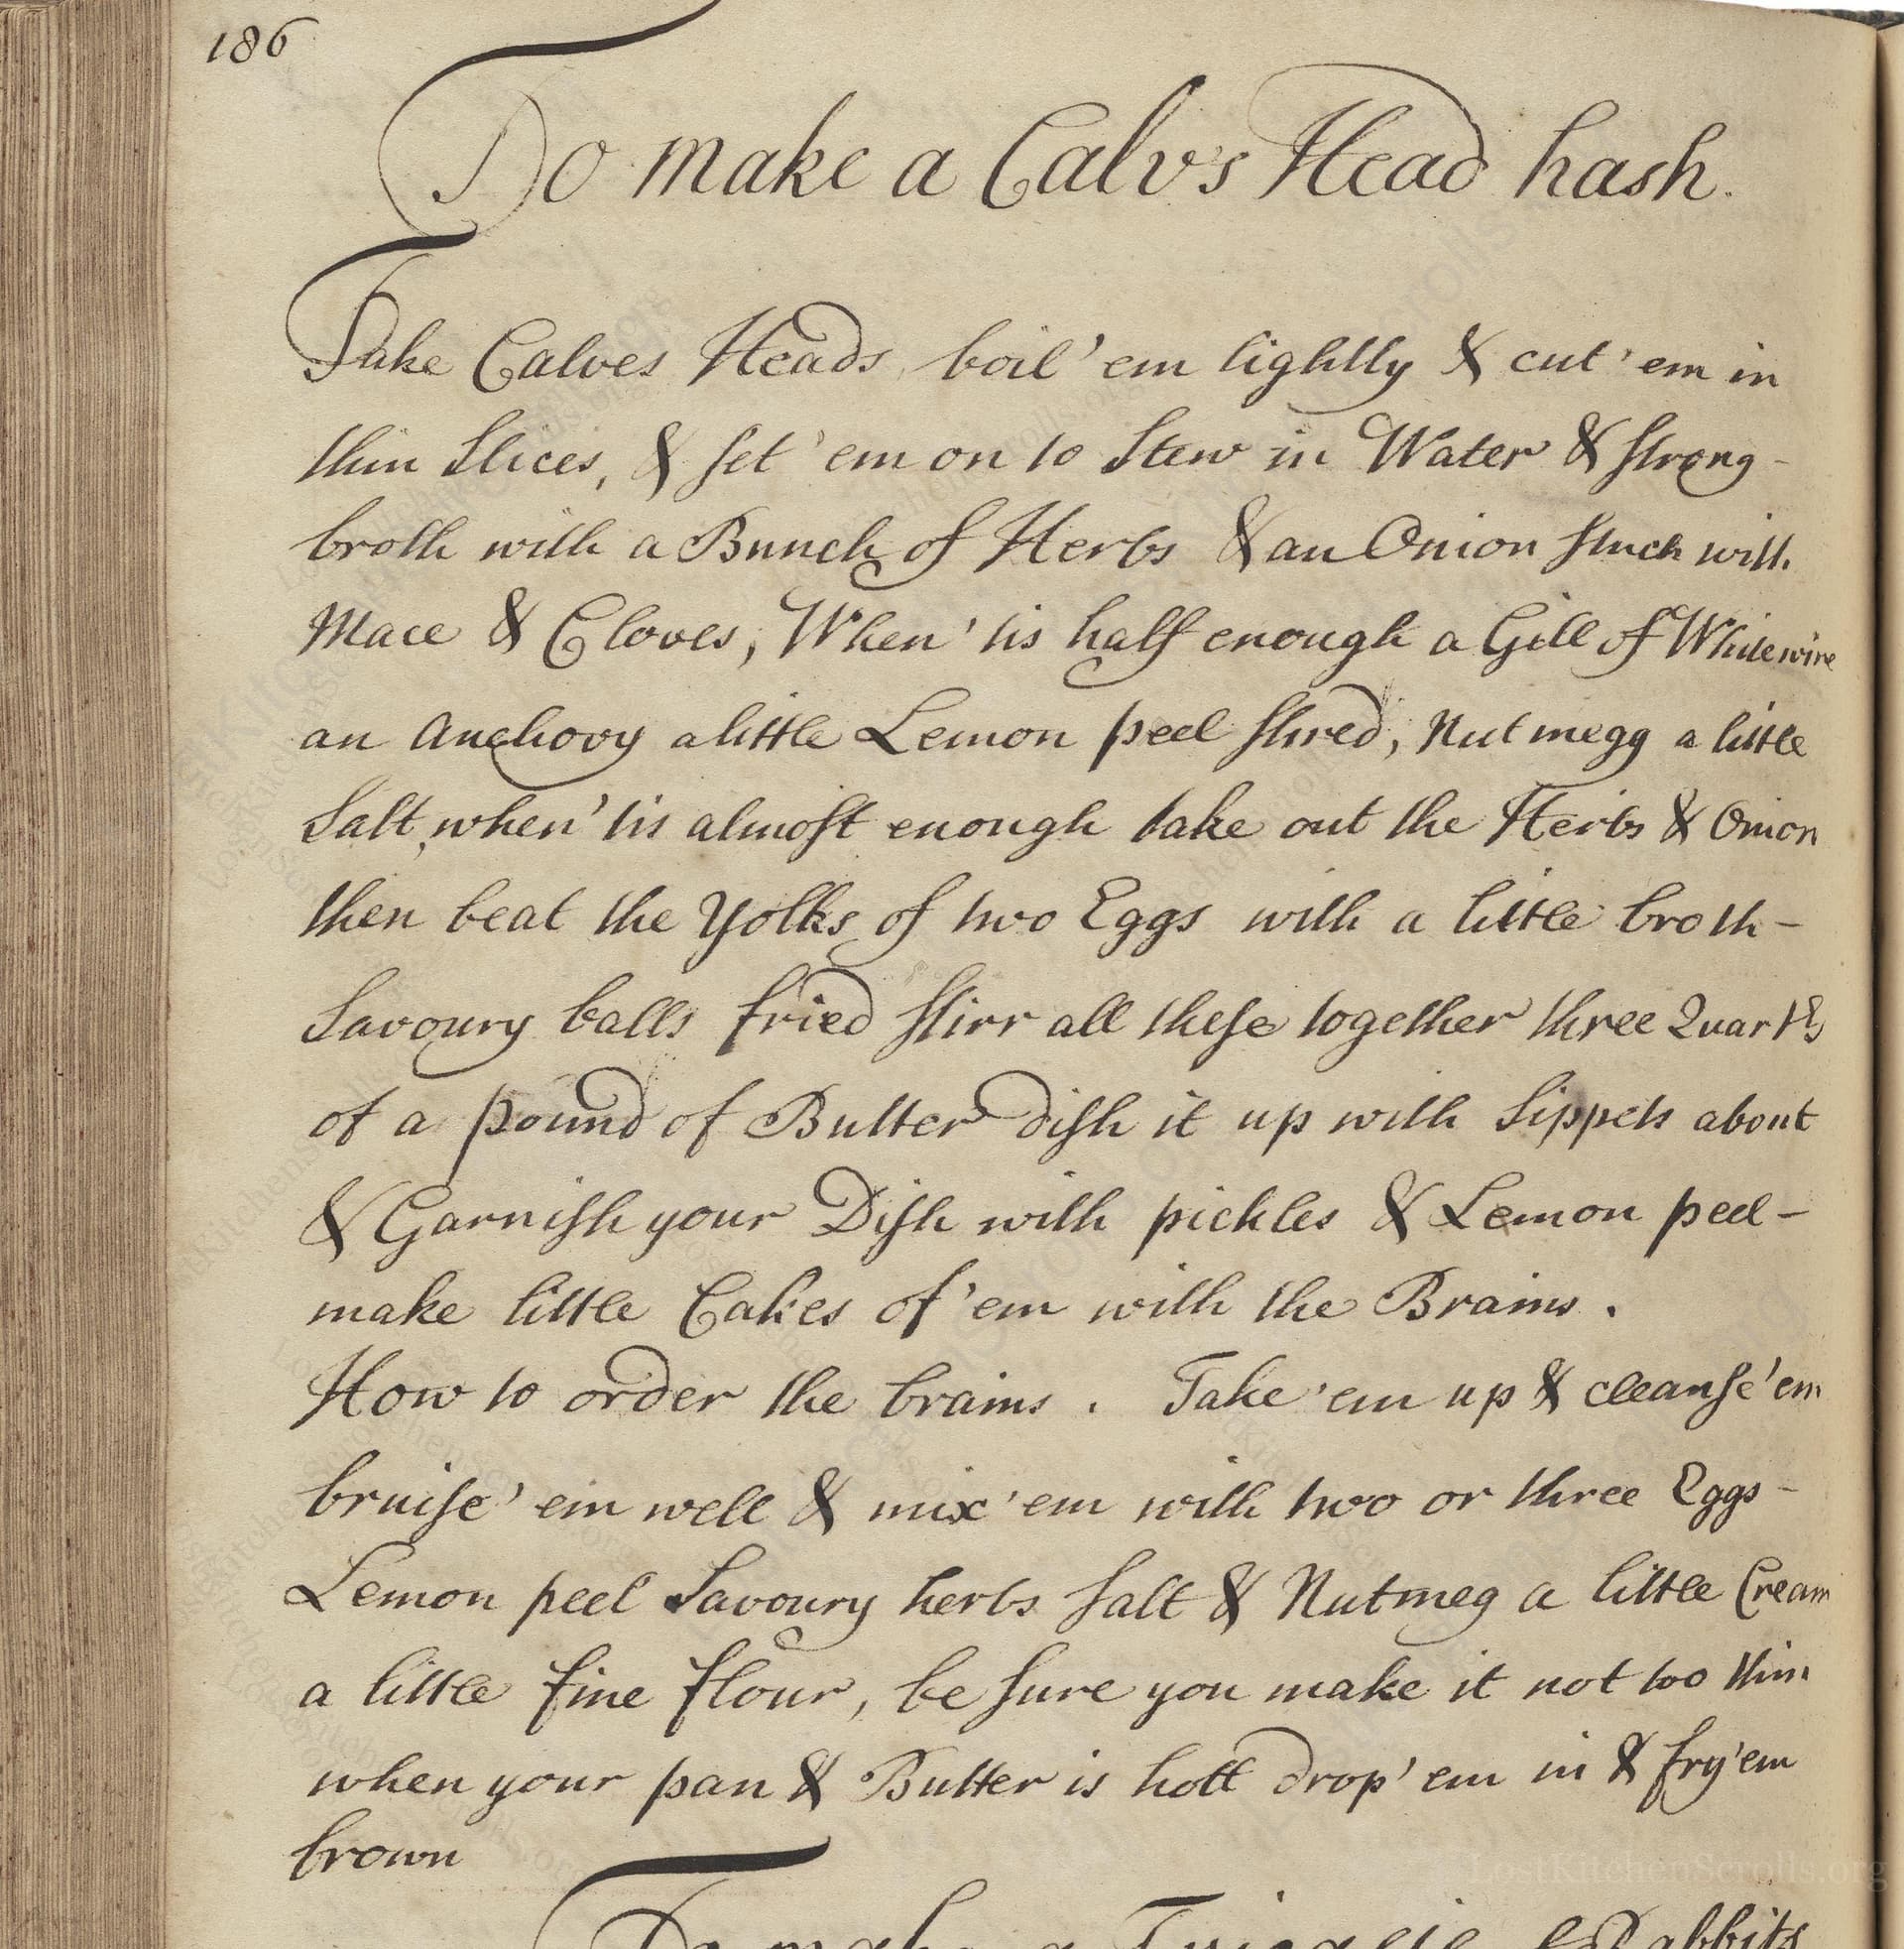 186
To make a Calvs Head hash.
Take Calves Heads boil 'em lightly & cut 'em in
thin Slices, & set 'em on to Stew in Water & strong-
broth with a Bunch of Herbs & an Onion stuck with
Mace & Cloves, When 'tis half enough a Gill of Whitewine
an Anchovy a little Lemon peel shred, Nutmegg a little
Salt, when 'tis almost enough take out the Herbs & Onion
then beat the Yolks of two Eggs with a little broth-
Savoury balls fried stirr all these together three Quarts
of a pound of Butter dish it up with Sippets about
& Garnish your Dish with pickles & Lemon peel-
make little Cakes of 'em with the Brains.
How to order the brains. Take 'em up & cleanse 'em
bruise 'em well & mix 'em with two or three Eggs-
Lemon peel Savoury herbs Salt & Nutmeg a little Cream
a little fine flour, be sure you make it not too thin
when your pan & Butter is hott drop 'em in & fry 'em
brown
LostKitchenScrolls.org
To make a Fricasie of Rabbits